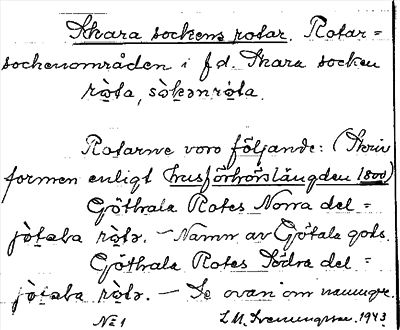 Skara sockens rotar. Rotar =
sockenområden i f.d. Skara socken
rò̱ta, sò̱kənrò̱ta.
Rotarne voro följande: (Skriv
formen enligt husförhörslängden 1800)
Göthala Rotes Norra del =
jø̀taba rò̱tə. — Namn av Götala gods.
Göthala Rotes Södra del =
jø̀taba rò̱tə. — Se ovan om namnge.
No 1 L.M. Svenungsson 1943